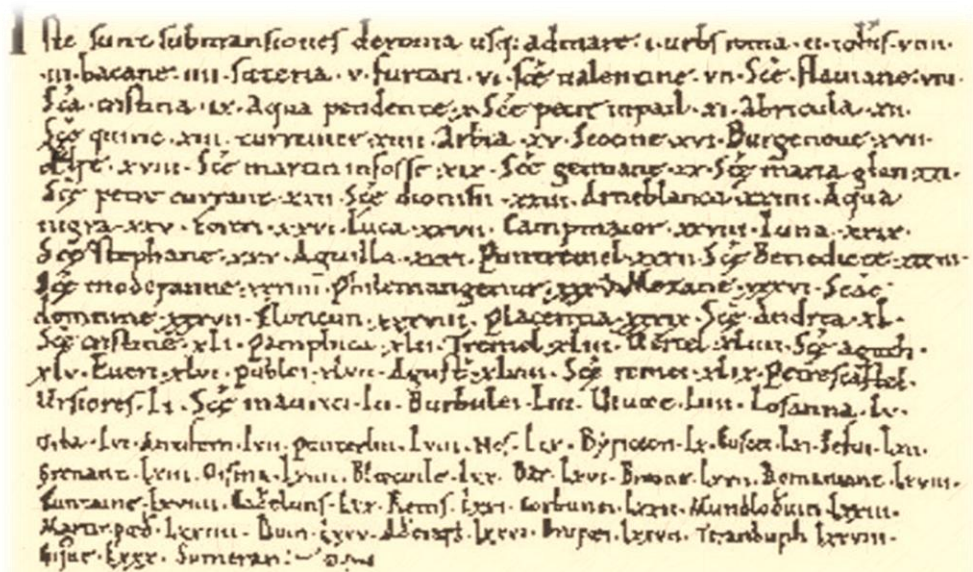 Iste sunt submansiones de roma usq; ad mare · i · urbs roma · ii · ioh̄is · viiii ·
· iii · bacane · iiii · suteria · v · furcari · vi · sc̄e ualentine · vii · Sc̄e flauiane · viii ·
Sc̄a · cristina · ix · Aqua pendente · x · Sc̄e petir inpail · xi · Abricula · xii ·
Sc̄e quiric · xiii · turreiner · xiiii · Arbia · xv · Seocine · xvi · Burgenoue · xvii ·
ælse · xviii · Sc̄e martin infosse · xix · Sc̄e gemiane · xx · Sc̄e maria glan · xxi ·
Sc̄e petre currant · xxii · Sc̄e dionisii · xxiii · Arneblanca · xxiiii · Aqua
nigra · xxv · forcri · xxvi · Luca · xxvii · Campmaior · xxviii · Luna · xxix ·
Sc̄e stephane · xxx · Aguilla · xxxi · Puntremel · xxxii · Sc̄e Benedicte · xxxiii ·
Sc̄e moderanne · xxxiiii · Philemangenur · xxxv · Metane · xxxvi · Sc̄e
domnine · xxxvii · floricun · xxxviii · placentia · xxxix · Sc̄e Andrea · xl ·
Sc̄e cristine · xli · pamphica · xlii · Tremel · xliii · Uercel · xliiii · Sc̄e agath ·
xlv · Eueri · xlvi · publei · xlvii · Agust̄ · xlviii · Sc̄e remei · xlix · petrecastel ·
Ursiores · li · Sc̄e maurici · lii · Burbulei · liii · Uiuæc · liiii · Losanna · lv ·
Urba · lvi · Antifern · lvii · punterlin · lviii · Nos · lix · Bysiceon · lx · Cuscei · lxi · Sefui · lxii ·
grenant · lxiii · oisma · lxiiii · Blæcuile · lxv · Bar · lxvi · Breone · lxvii · Domaniant · lxviii ·
funtaine · lxviiii · Caðeluns · lxx · Rems · lxxi · corbunei · lxxii · Mundloðuin · lxxiii ·
Martinpæð · lxxiiii · Duin · lxxv · Aðerats · lxxvi · bruƿæi · lxxvii · teranburh · lxxviii ·
gisne · lxxx · Sumeran